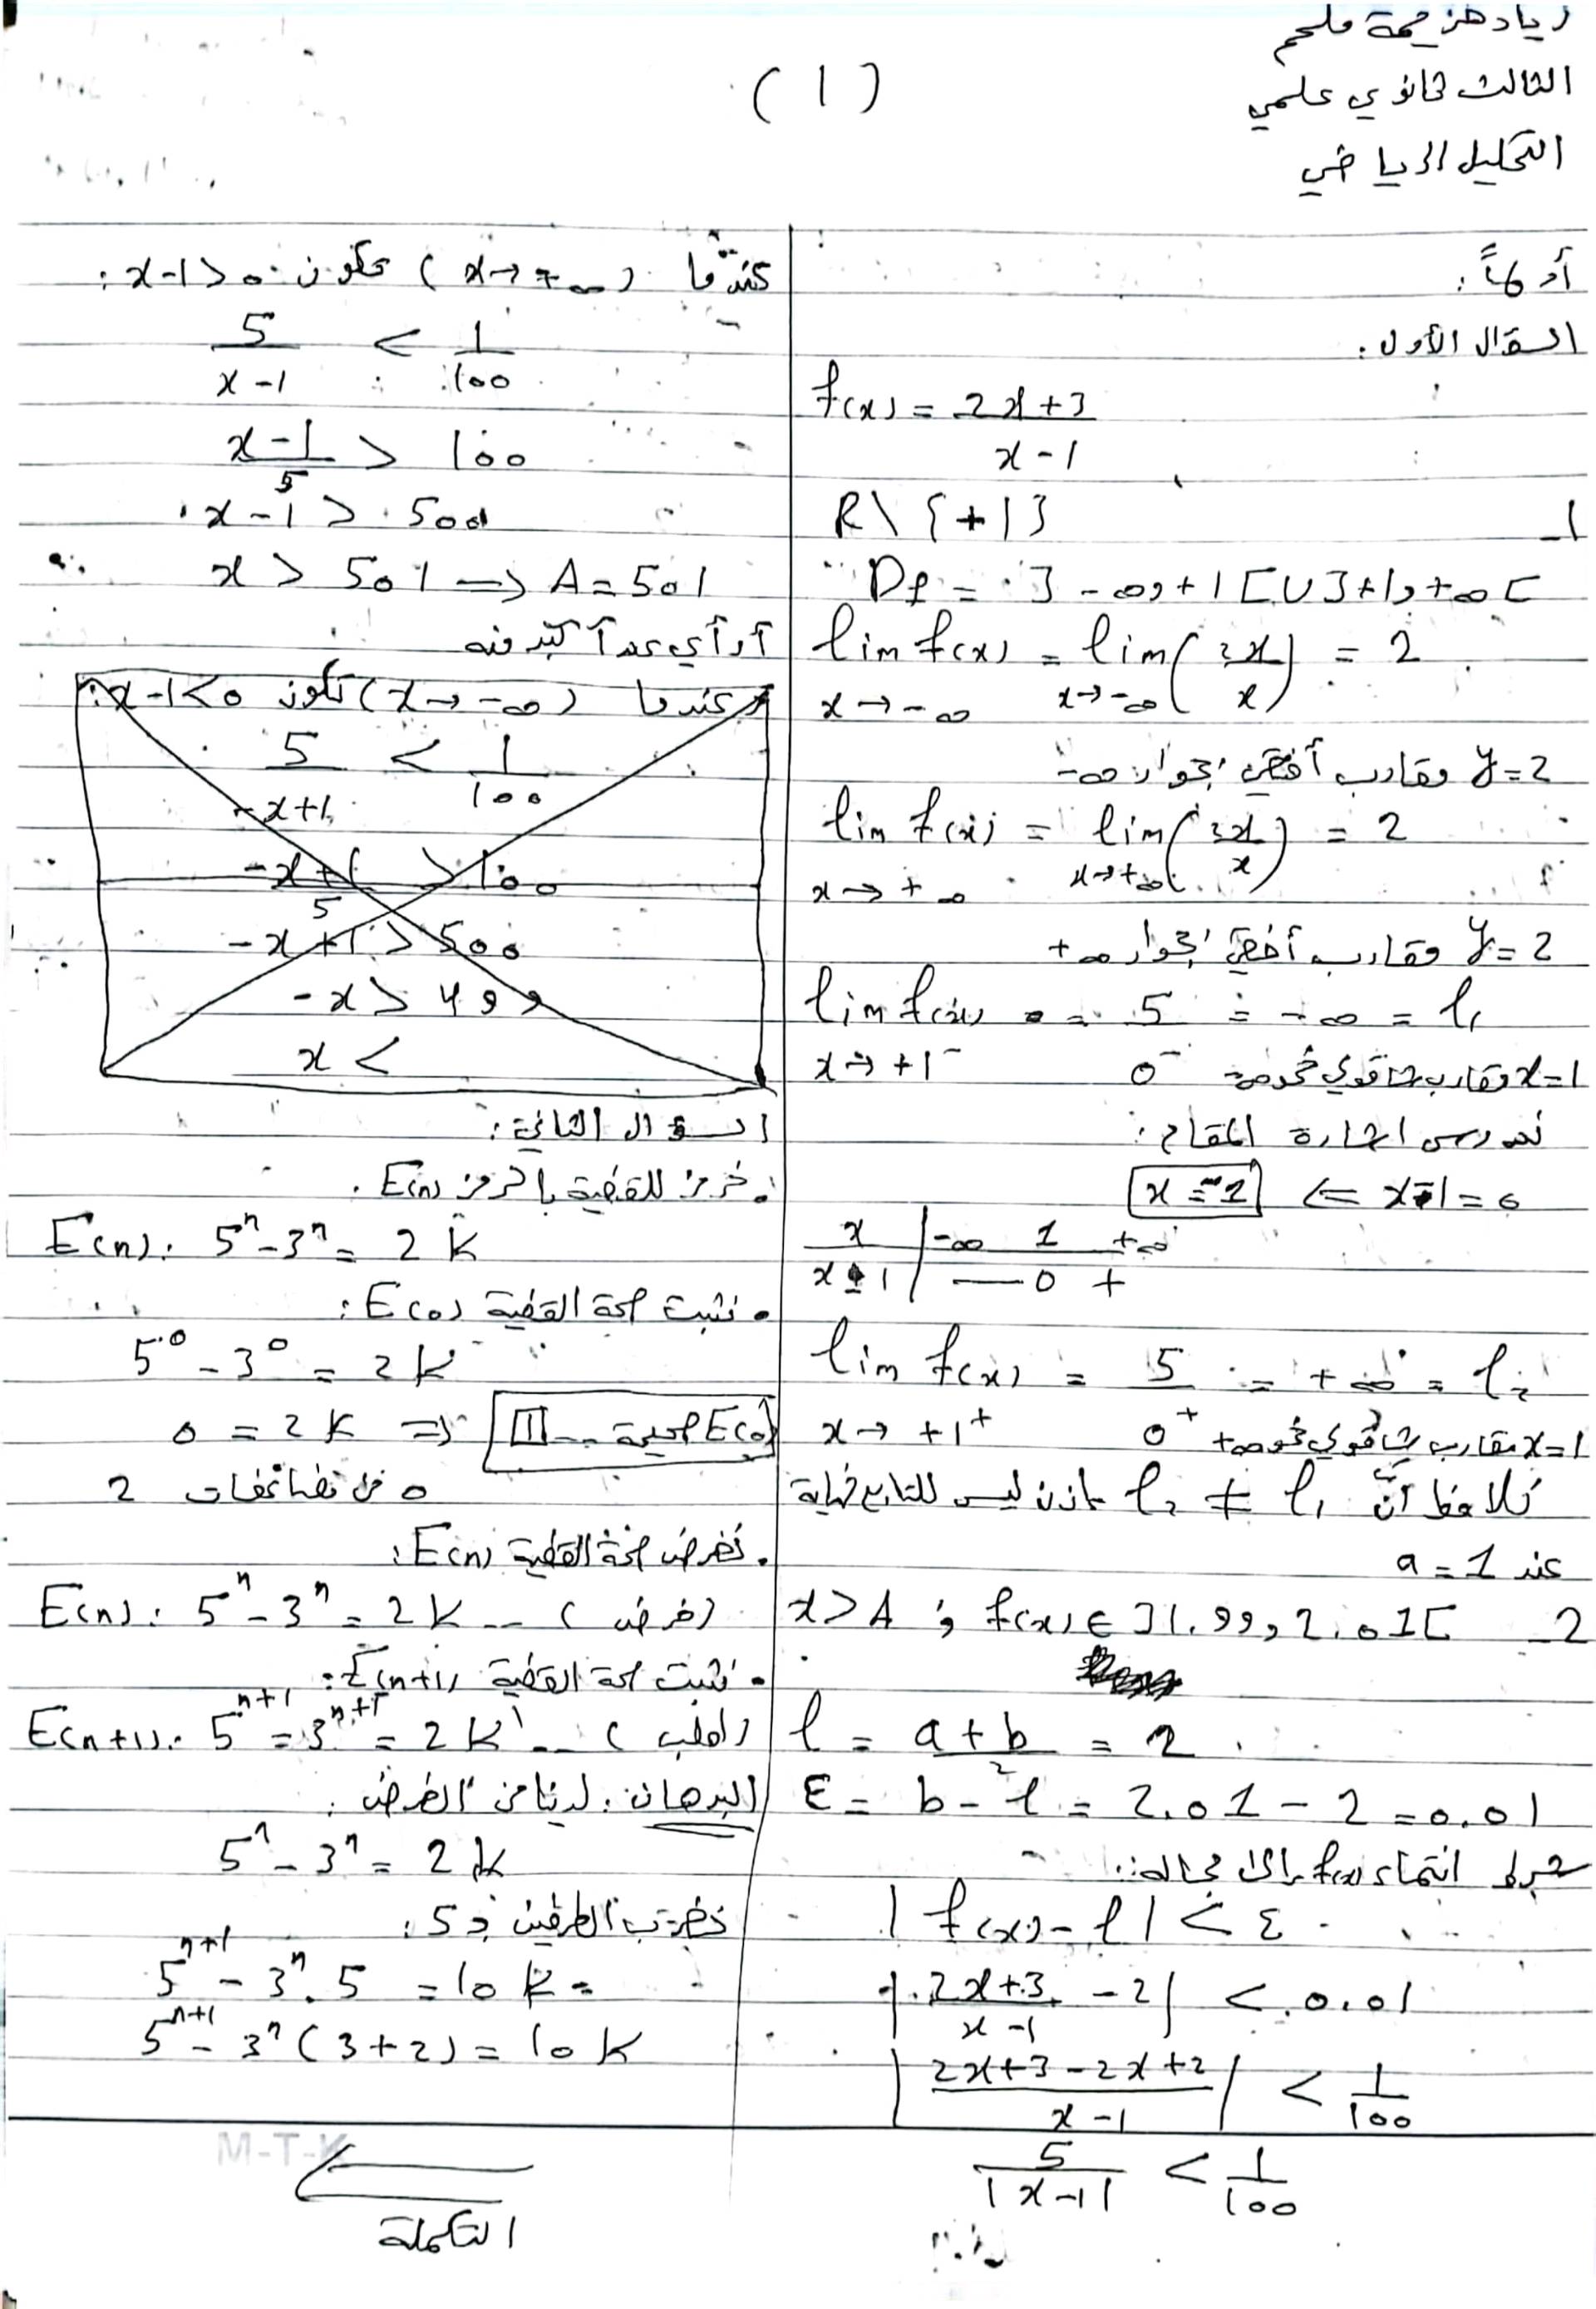 رياد هزيمة ملحم
الثالث ثانوي علمي
التحليل الرياضي
(1)
أولاً:
السؤال الأول:
f(x) = \frac{2x+3}{x-1}
1_
R\{+1}
Df = ]-∞,+1[U]+1,+∞[
lim_{x→-∞} f(x) = lim_{x→-∞} (\frac{2x}{x}) = 2
y=2 مقارب أفقي بجوار -∞
lim_{x→+∞} f(x) = lim_{x→+∞} (\frac{2x}{x}) = 2
y=2 مقارب أفقي بجوار +∞
lim_{x→+1⁻} f(x) = \frac{5}{0⁻} = -∞ = l₁
x=1 مقارب شاقولي نحو -∞
ندرس إشارة المقام:
x-1=0 ⇒ x=1
x | -∞ 1 +∞
x-1 | — 0 +
lim_{x→+1⁺} f(x) = \frac{5}{0⁺} = +∞ = l₂
x=1 مقارب شاقولي نحو +∞
نلاحظ أنّ l₁ ≠ l₂ إذن ليس للتابع نهاية
عند a=1
2_ x>A ; f(x) ∈ ]1.99, 2.01[
l = \frac{a+b}{2} = 2
ε = b-l = 2.01-2 = 0.01
شرط انتماء f(x) إلى مجاله:
|f(x)-l| < ε
|\frac{2x+3}{x-1} - 2| < 0.01
|\frac{2x+3-2x+2}{x-1}| < \frac{1}{100}
\frac{5}{|x-1|} < \frac{1}{100}
عندما (x→+∞) تكون x-1>0:
\frac{5}{x-1} < \frac{1}{100}
\frac{x-1}{5} > 100
x-1 > 500
x > 501 ⇒ A=501
أو أي عدد أكبر منه
عندما (x→-∞) تكون x-1<0:
\frac{5}{-x+1} < \frac{1}{100}
\frac{-x+1}{5} > 100
-x+1 > 500
-x > 499
x <
السؤال الثاني:
. نرمز للقضية بالرمز E(n).
E(n): 5ⁿ-3ⁿ = 2k
• نثبت صحة القضية E(0):
5⁰-3⁰ = 2k
0 = 2k ⇒ E(0) صحيحة ... 1
0 من مضاعفات 2
. نفرض صحة القضية E(n):
E(n): 5ⁿ-3ⁿ = 2k ... (فرض)
• نثبت صحة القضية E(n+1):
E(n+1): 5ⁿ⁺¹ = 3ⁿ⁺¹ = 2k' ... (طلب)
البرهان: لدينا من الفرض:
5ⁿ-3ⁿ = 2k
نضرب الطرفين بـ 5:
5ⁿ⁺¹ - 3ⁿ.5 = 10k
5ⁿ⁺¹ - 3ⁿ(3+2) = 10k
M-T-K
التكملة